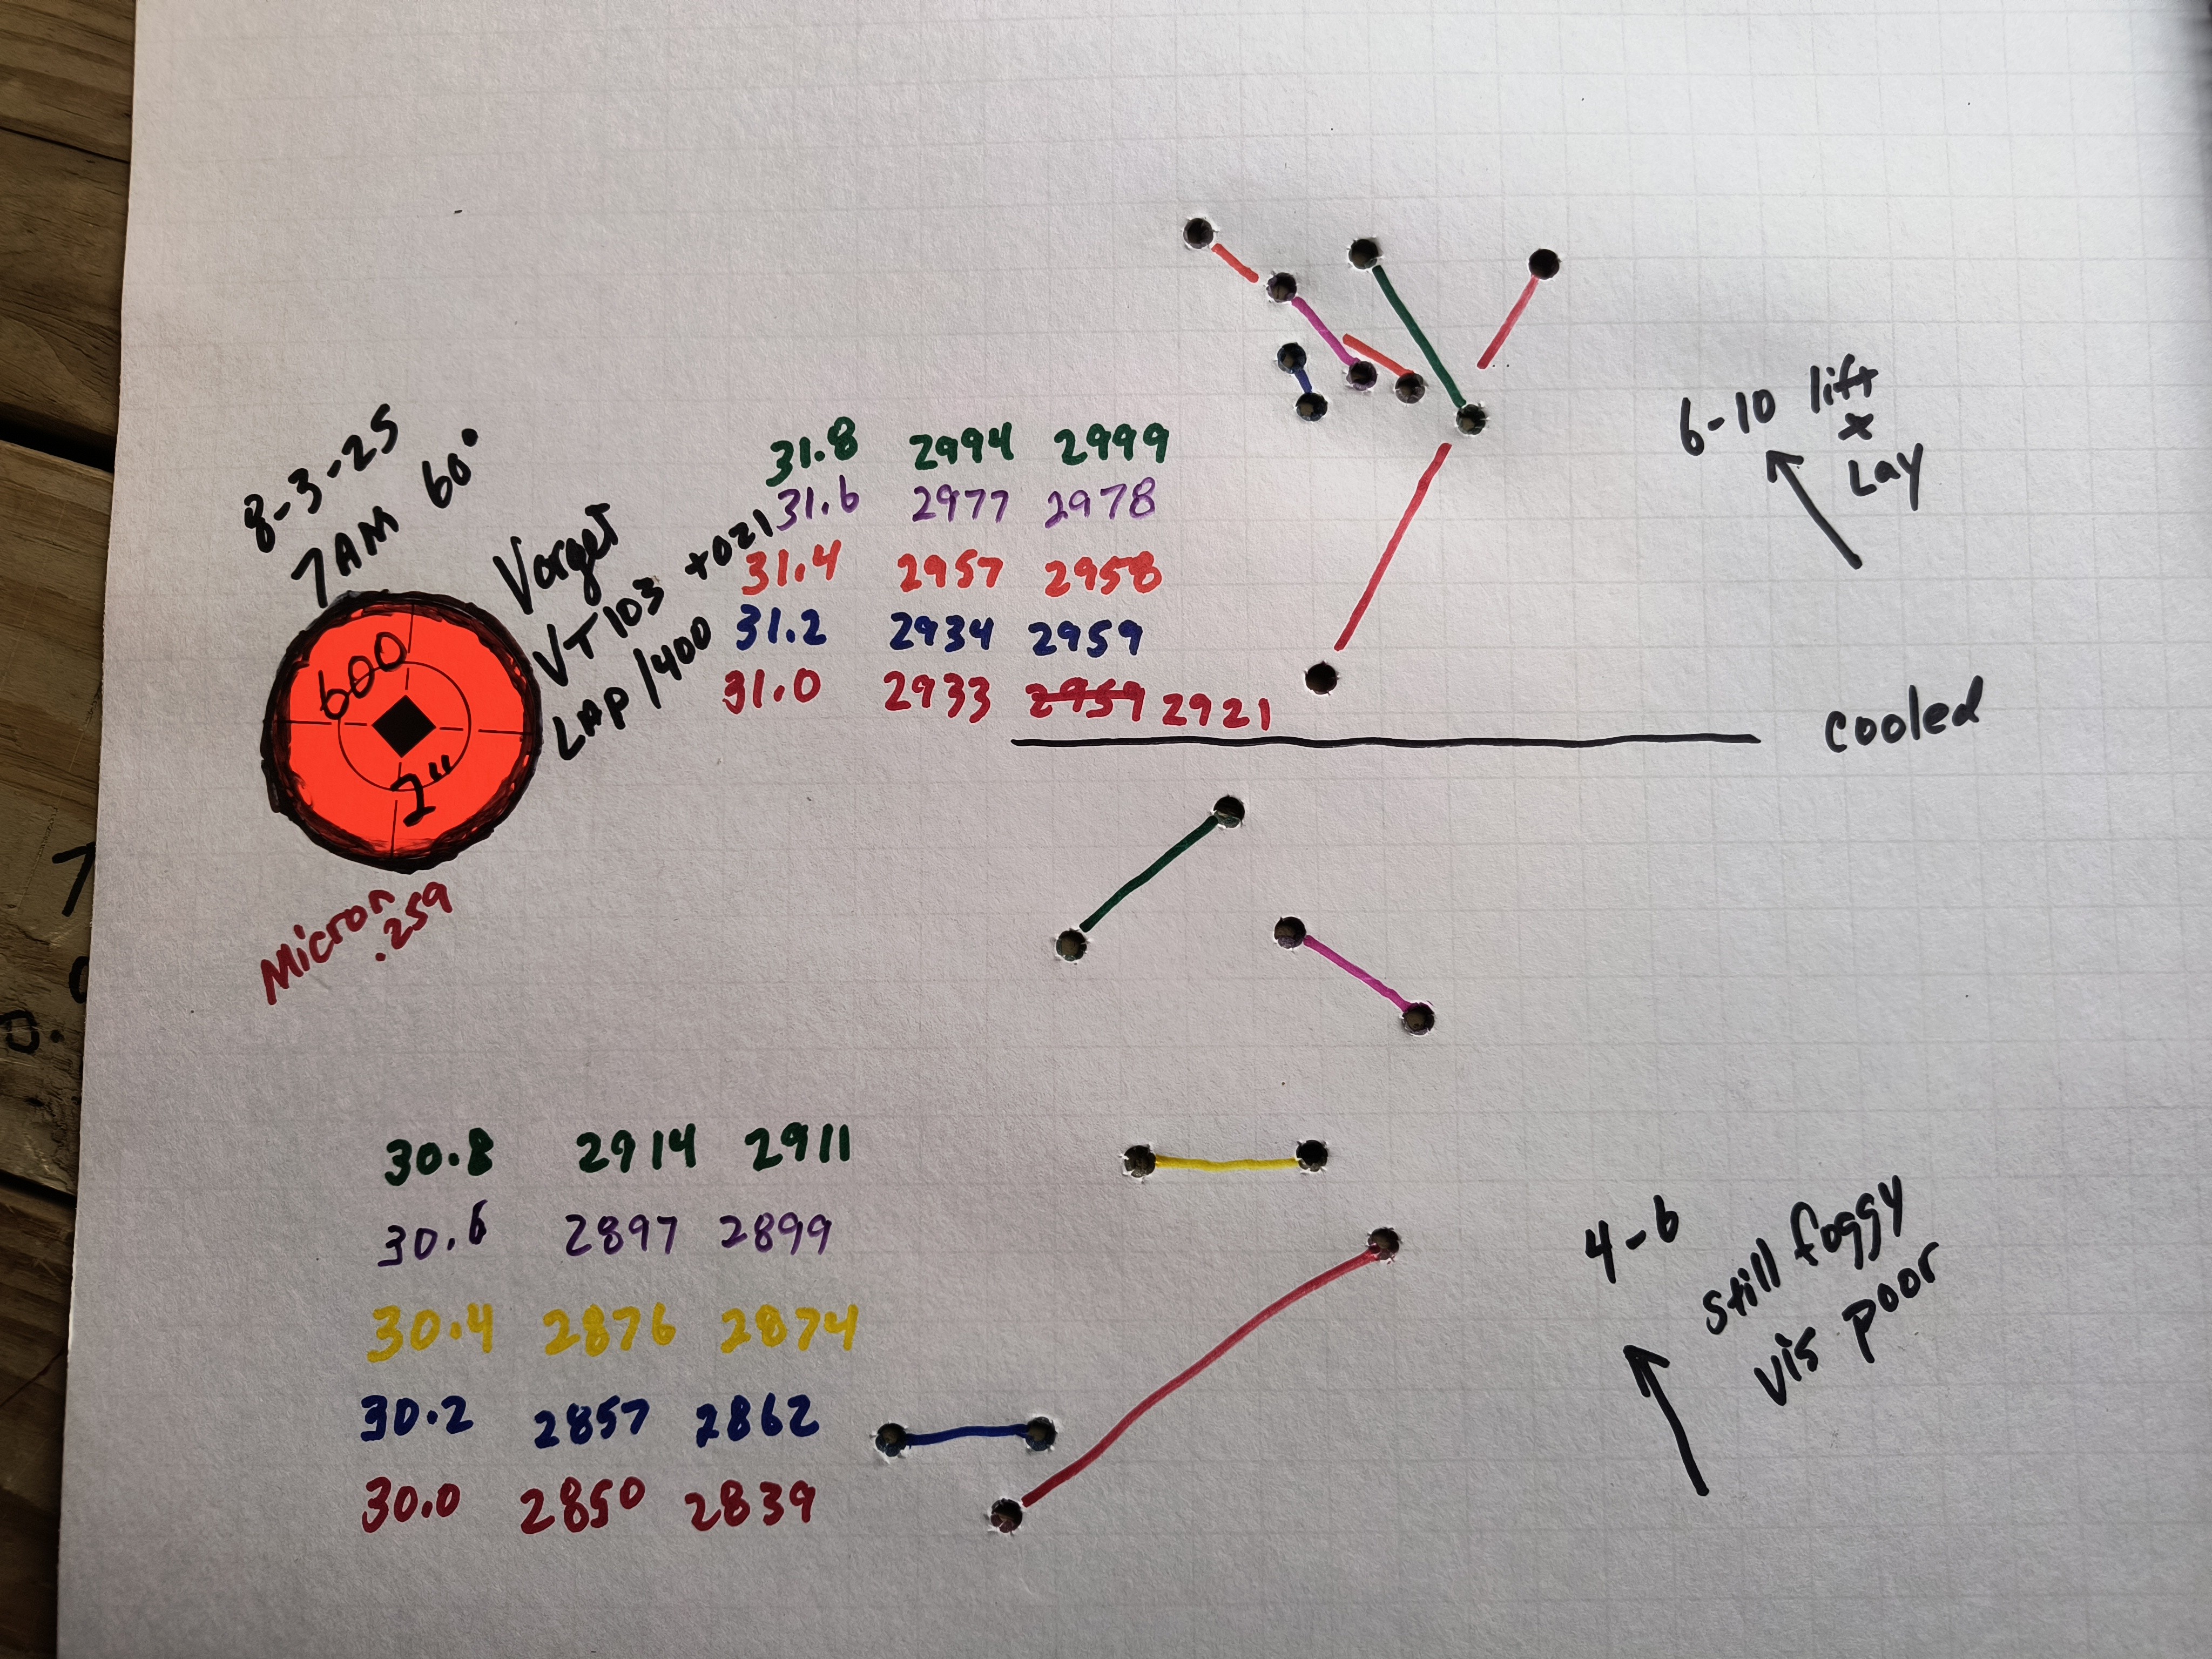 8-3-25
7AM 60°
600
2"
Micron
.259
Varget
VT103 +021
LAP/400
31.8 2994 2999
31.6 2977 2978
31.4 2957 2958
31.2 2934 2959
31.0 2933 2959 2921
6-10 lift
x
Lay
cooled
30.8 2914 2911
30.6 2897 2899
30.4 2876 2874
30.2 2857 2862
30.0 2850 2839
4-6
still foggy
vis poor